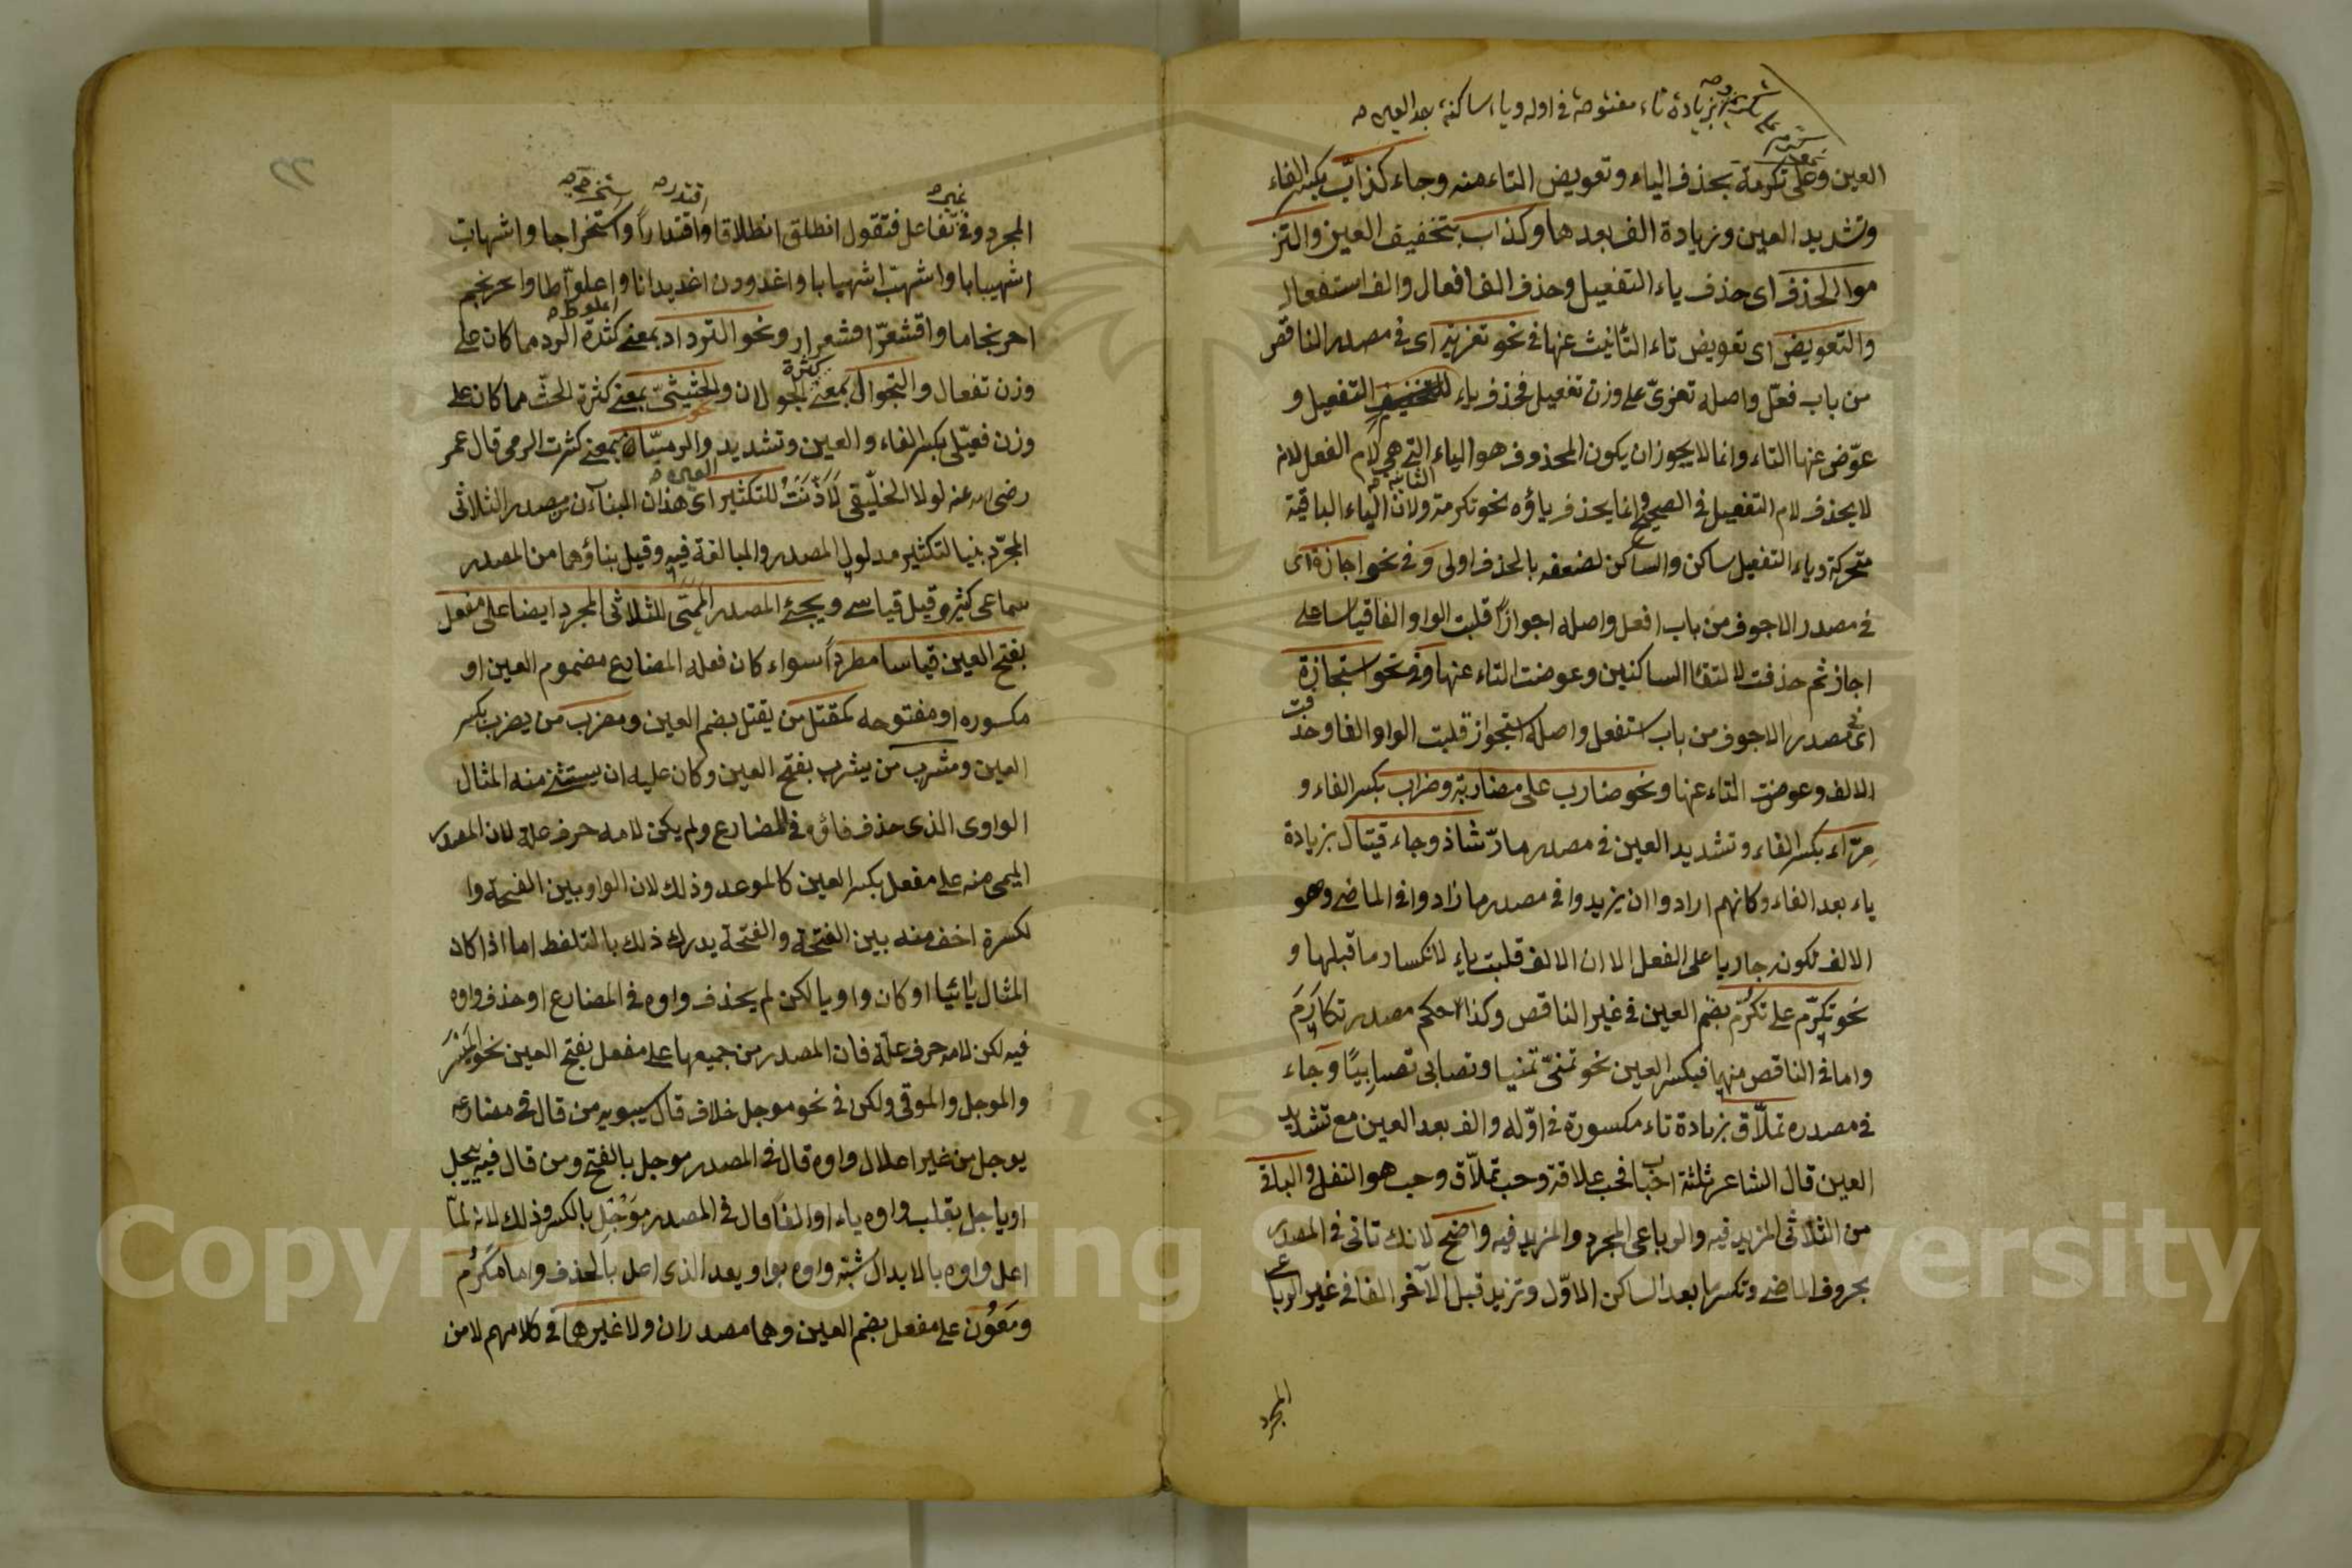 بزيادة تاء مفتوحة في اوله وياء ساكنة بعد العين صح
العين وعلى تكرمة بحذف الياء وتعويض التاء منه وجاء كذاب بكسر الفاء
وتشديد العين وزيادة الف بعدها وكذاب بتخفيف العين والتز
موا الحذف اى حذف ياء التفعيل وحذف الف افعال والف استفعال
والتعويض اى تعويض تاء التأنيث عنها في نحو تعزية اى في مصدر الناقص
من باب فعّل واصله تعزىّ على وزن تفعيل فحذف ياء التفعيل و
عوّض عنها التاء وانما لا يجوز ان يكون المحذوف هو الياء التى هى لام الفعل لانه
لا يحذف لام التفعيل في الصحيح وانما يحذف ياؤه نحو تكرمة ولان الياء الثانية الباقية
متحركة وياء التفعيل ساكن والساكن لضعفه بالحذف اولى وفى نحو اجازة اى
في مصدر الاجوف من باب افعل واصله اجوازا قلبت الواو الفا قياسا على
اجاز ثم حذفت لالتقاء الساكنين وعوضت التاء عنها وفى نحو استجازة
اى في مصدر الاجوف من باب استفعل واصله استجواز قلبت الواو الفا وحذفت
الالف وعوضت التاء عنها ونحو ضارب على مضاربة وضراب بكسر الفاء و
مرّاء بكسر الفاء وتشديد العين في مصدر مارّ شاذ وجاء قيتال بزيادة
ياء بعد الفاء وكانهم ارادوا ان يزيدوا في مصدر ما زادوا في الماضى وهو
الالف تكون جاريا على الفعل الا ان الالف قلبت ياء لانكسار ما قبلها و
نحو تكرّم على تكرّم بضم العين في غير الناقص وكذا حكم مصدر تكارم
واما في الناقص منهما فبكسر العين نحو تمنىّ تمنيا وتصابى تصابيًا وجاء
في مصدره تملّاق بزيادة تاء مكسورة في اوّله والف بعد العين مع تشديد
العين قال الشاعر ثلثة احباب فحب علاقة وحب تملّاق وحب هو القتل والباقى
من الثلاثى المزيد فيه والرباعى المجرد والمزيد فيه واضح لانك تاتى في المصدر
بحروف الماضى وتكسر ما بعد الساكن الاوّل وتزيد قبل الآخر الفا في غير الرباعى
المجرد
٢٢
المجرد وفى غير تفاعل فتقول انطلق انطلاقا واقتدر اقتدارا واستخرج استخراجا واشهاب
اشهيبابا واشهب اشهبابا واغدودن اغديدانا واعلوط اعلوّاطا واحرنجم
احرنجاما واقشعرّ اقشعرار ونحو الترداد بمعنى كثرة الرد مما كان على
وزن تفعال والتجوال بمعنى كثرة الجولان والحثيثىّ بمعنى كثرة الحثّ مما كان على
وزن فعيّلى بكسر الفاء والعين وتشديد العين والرميّا بمعنى كثرت الرمى قال عمر
رضى الله عنه لولا الخلّيقى لَاَذَّنْتُ للتكثير اى هذان البناآن من مصدر الثلاثى
المجرّد بنيا لتكثير مدلول المصدر والمبالغة فيه وقيل بناؤهما من المصدر
سماعى كثير وقيل قياسى ويجئ المصدر الميمى للثلاثى المجرد ايضا على مفعل
بفتح العين قياسا مطردا سواء كان فعله المضارع مضموم العين او
مكسوره او مفتوحه كمقتل من يقتل بضم العين ومضرب من يضرب بكسر
العين ومشرب من يشرب بفتح العين وكان عليه ان يستثنى منه المثال
الواوى الذى حذف فاؤه في المضارع ولم يكن لامه حرف علة لان المصدر
الميمى منه على مفعل بكسر العين كالموعد وذلك لان الواو بين الفتحة وا
لكسرة اخف منه بين الفتحة والفتحة يدرك ذلك بالتلفظ اما اذا كان
المثال يائيا او كان واويا لكن لم يحذف واوه في المضارع او حذف واوه
فيه لكن لامه حرف علة فان المصدر من جميعها على مفعل بفتح العين نحو الميسر
والموجل والموقى ولكن في نحو موجل خلاف قال سيبويه من قال في مضارعه
يوجل من غير اعلال واوه قال في المصدر موجل بالفتح ومن قال فيه ييجل
او ياجل بقلب واوه ياء او الفا قال في المصدر مَوْجِل بالكسر وذلك لانه لما
اعل واوه بالابدال شبّه واوه بواو يعد الذى اعل بالحذف واما مكرُم
ومَعُون على مفعل بضم العين وهما مصدران ولا غيرهما في كلامهم لا من
Copyright © King Saud University
195